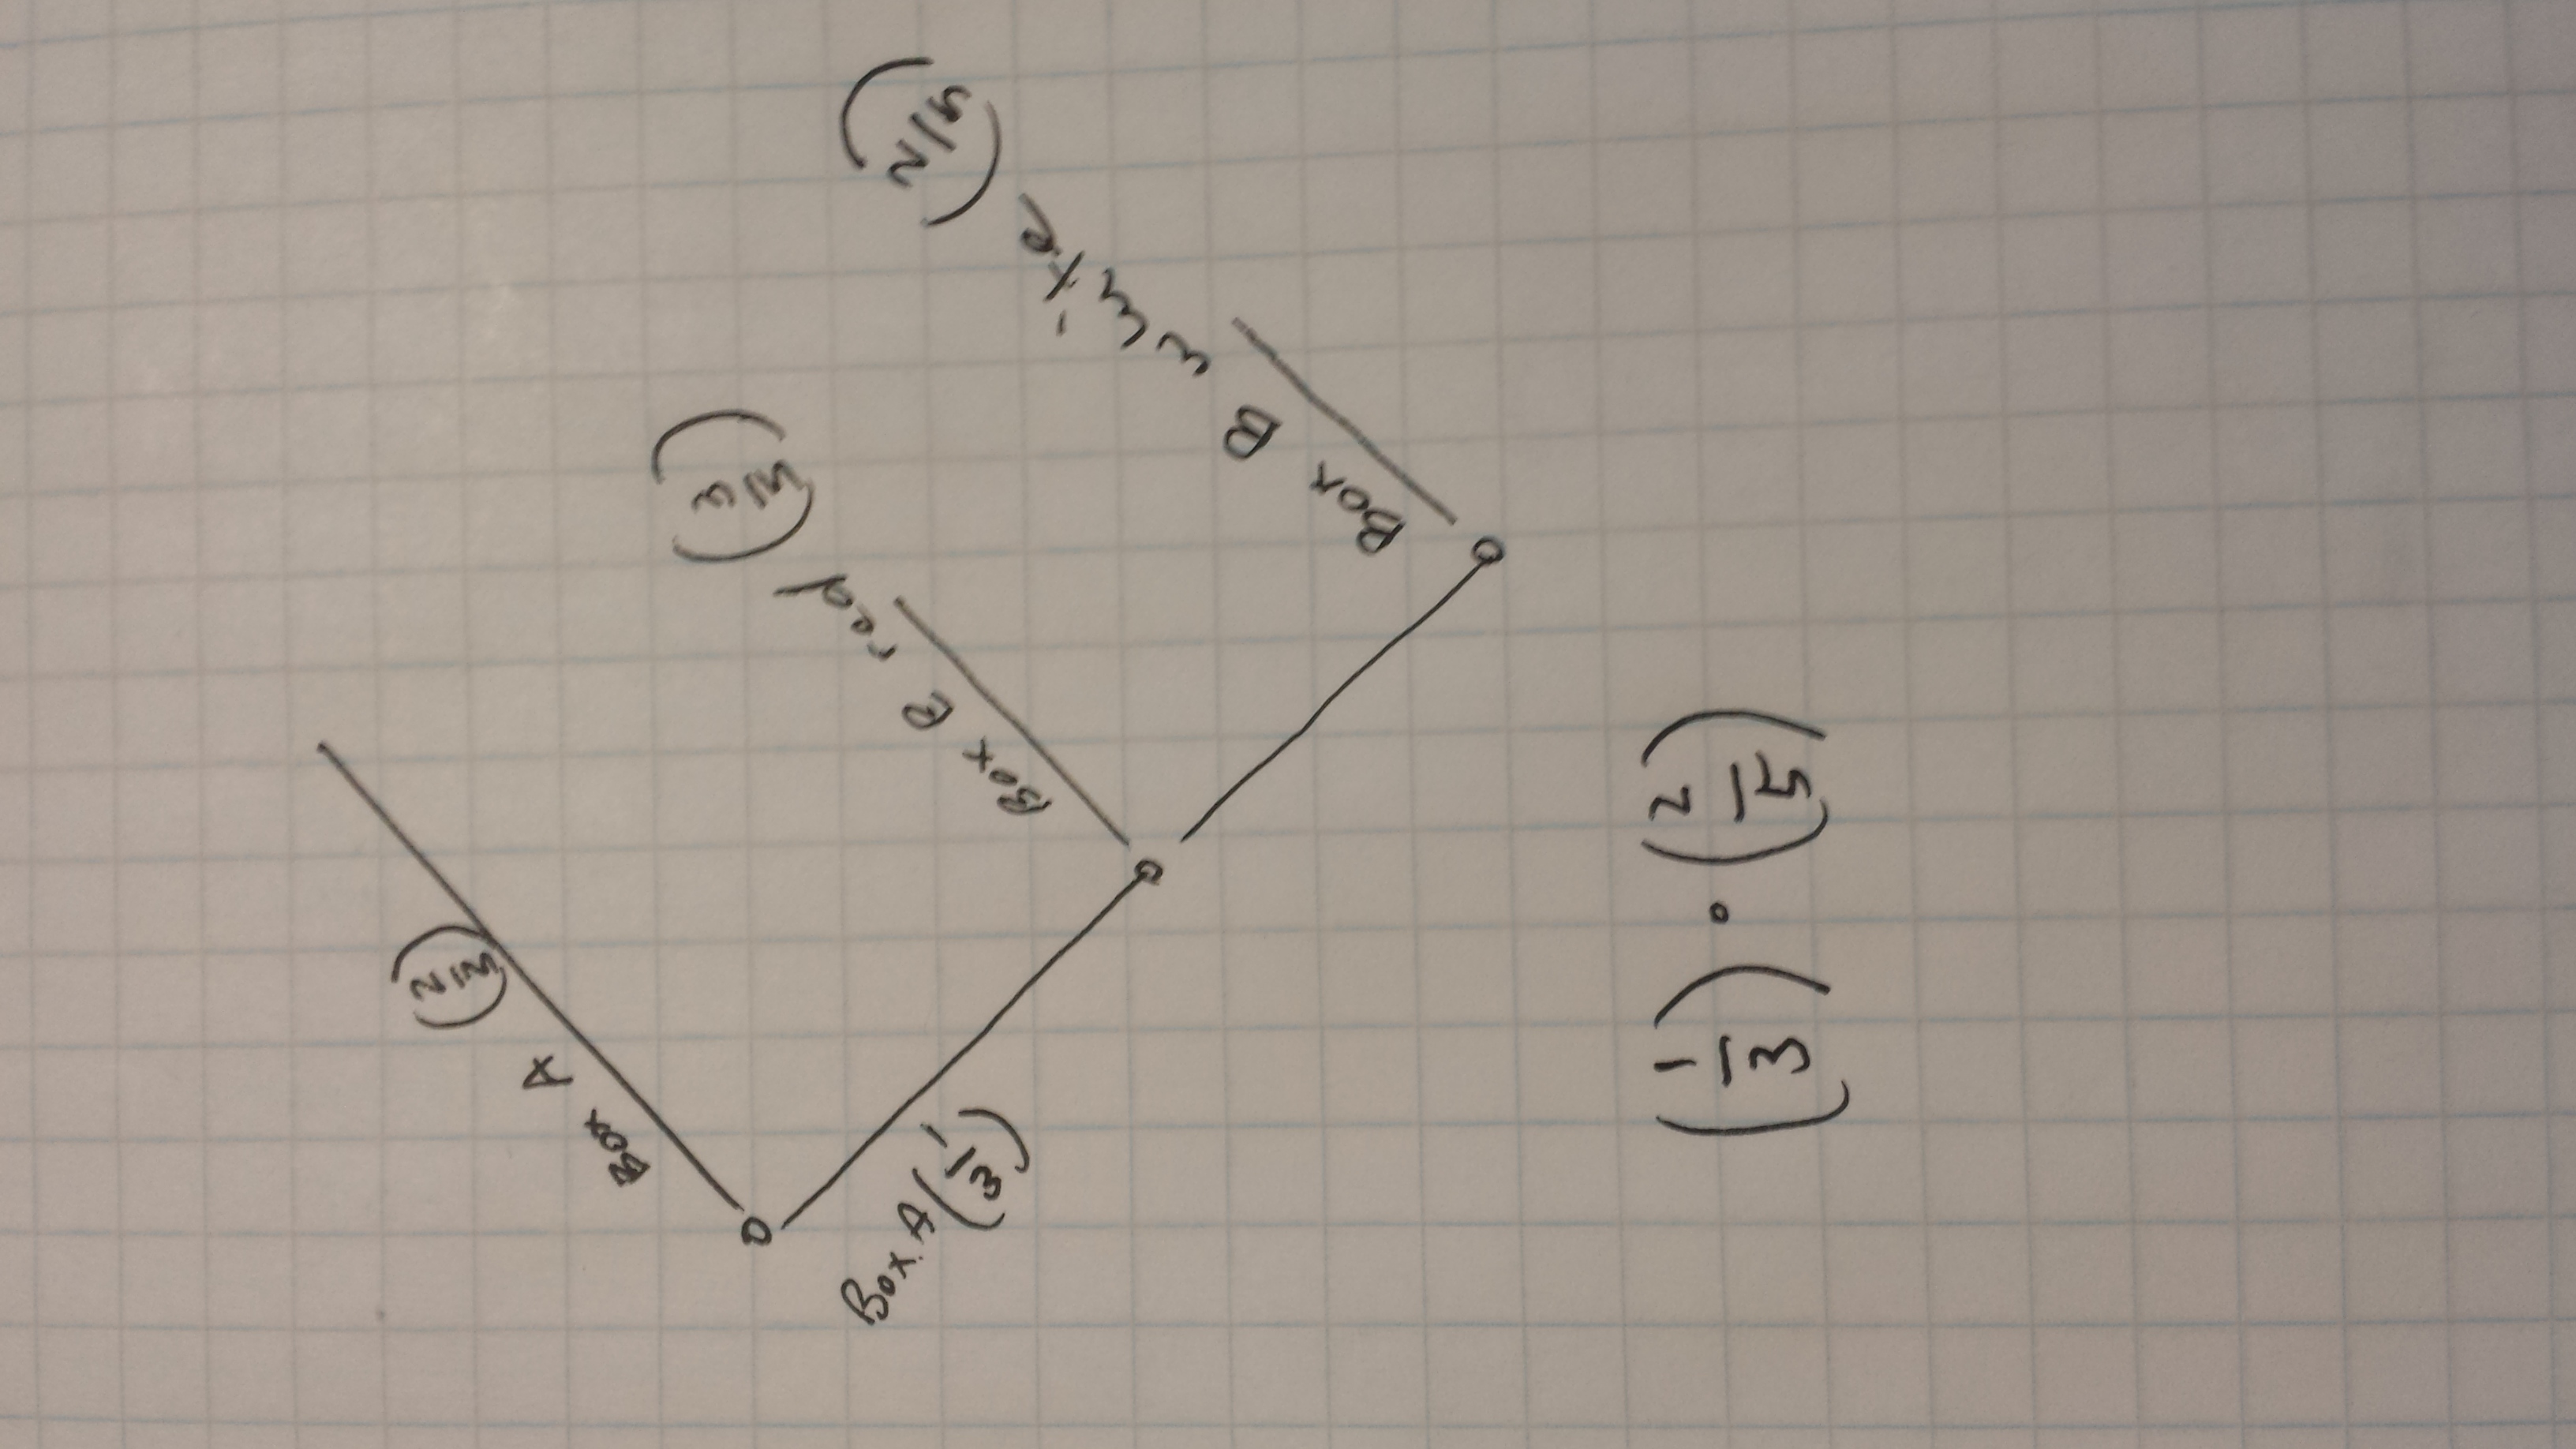 Box A (2/3)
Box A (1/3)
Box B red (3/5)
Box B (2/5)
(1/3) · (2/5)